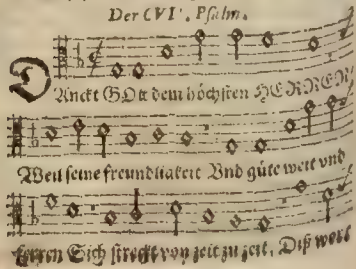 Der CVI. Psalm.
DAnckt GOtt dem höchsten HERREN/
Weil seine freundligkeit Vnd güte weit vnd
ferren Sich streckt von zeit zu zeit, Diß werk